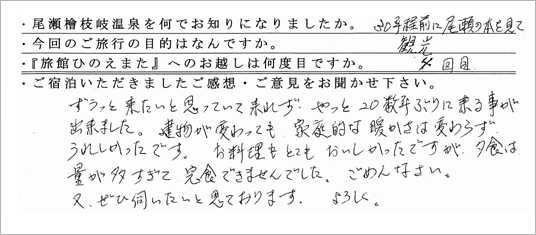 ・尾瀬檜枝岐温泉を何でお知りになりましたか。 30年程前に尾瀬の本を見て
・今回のご旅行の目的はなんですか。 観光
・『旅館ひのえまた』へのお越しは何度目ですか。 4回目
・ご宿泊いただきましたご感想・ご意見をお聞かせ下さい。
ずうっと来たいと思っていて来れず、やっと20数年ぶりに来る事が
出来ました。建物が変わっても、家庭的な暖かさは変わらず
うれしかったです。お料理もとてもおいしかったですが、夕食は
量が多すぎて完食できませんでした。ごめんなさい。
又、ぜひ伺いたいと思っております。よろしく。